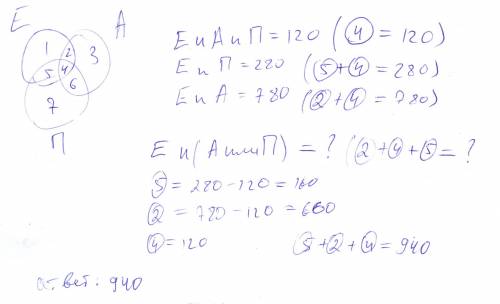 Е
А
1 2 3
5 4
6
7
П
Е и А и П = 120 (④ = 120)
Е и П = 280 (⑤+④ = 280)
Е и А = 780 (②+④ = 780)
Е и (А или П) = ? (②+④+⑤ = ?
⑤ = 280 - 120 = 160
② = 780 - 120 = 660
④ = 120 ⑤+②+④ = 940
ответ: 940